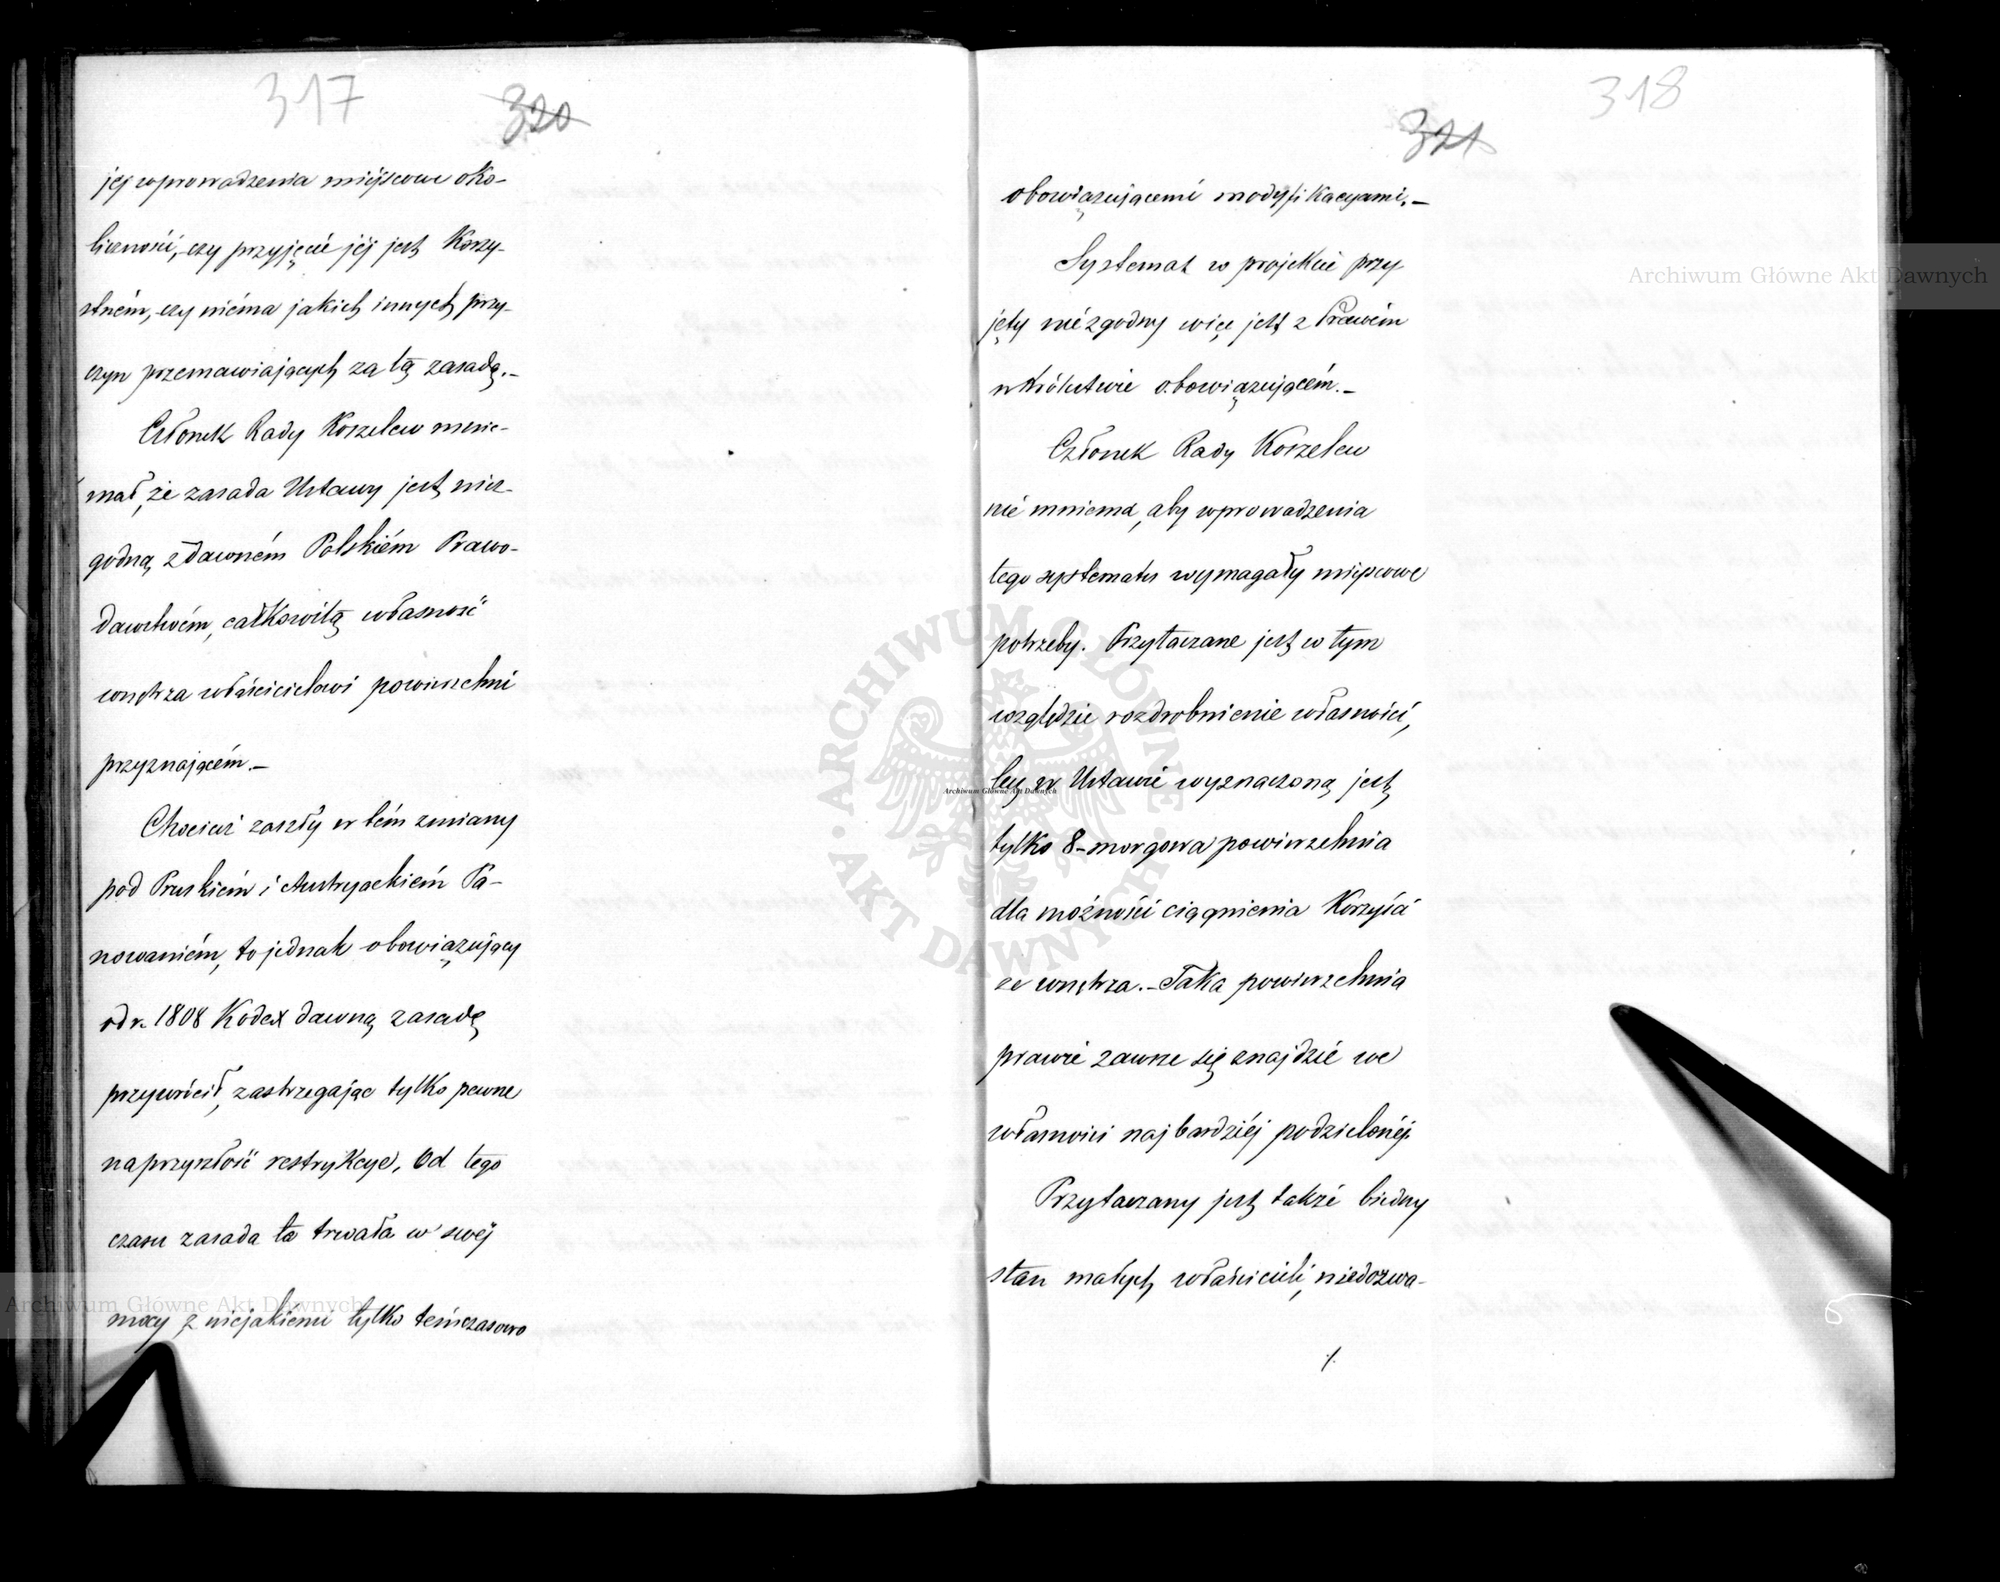 317
320
jéj wprowadzenia miéjscowe oko-
liczności, czy przyjęcie jéj jest korzy-
stném, czy niéma jakich innych przy-
czyn przemawiających za tą zasadą.-
Członek Rady Korzelew mnie-
mał, że zasada Ustawy jest niez-
godną z dawném Polskiém Prawo-
dawstwém, całkowitą własność
wnętrza właścicielowi powierzchni
przyznającém.-
Chociaż zaszły w tém zmiany
pod Pruskiém i Austryackiém Pa-
nowaniém, to jednak obowiązujący
od r. 1808 Kodex dawną zasadę
przywrócił, zastrzegając tylko pewne
na przyszłość restrykcye. Od tego
czasu zasada ta trwała w swéj
mocy z niejakiemi tylko témczasowo
318
321
obowiązującemi modyfikacyami.-
Systemat w projekcie przy
jęty niézgodny więc jest z Prawém
w Królestwie obowiązującém.-
Członek Rady Korzelew
nié mniema, aby wprowadzenia
tego systematu wymagały miejscowe
potrzeby. Przytaczane jest w tym
względzie rozdrobnienie własności,
lecz w Ustawie wyznaczoną jest
tylko 8-morgowa powierzchnia
dla możności ciągnienia korzyści
ze wnętrza.- Taka powierzchnia
prawie zawsze się znajdzie we
własności najbardziéj podzielonéj.
Przytaczany jest także biedny
stan małych właścicieli, niedozwa-
./.
Archiwum Główne Akt Dawnych
Archiwum Główne Akt Dawnych
Archiwum Główne Akt Dawnych
ARCHIWUM GŁÓWNE AKT DAWNYCH